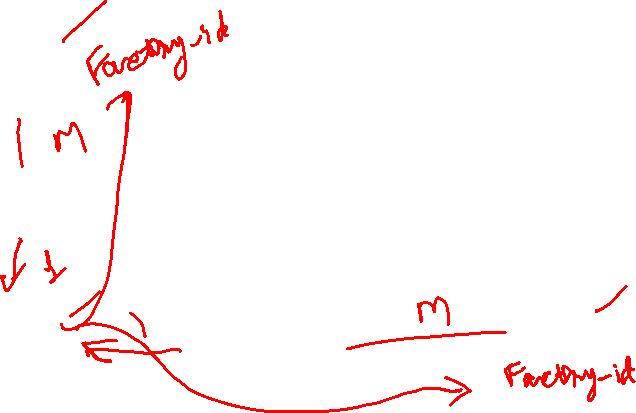 Factory_id
1 M
1
1
M
Factory_id